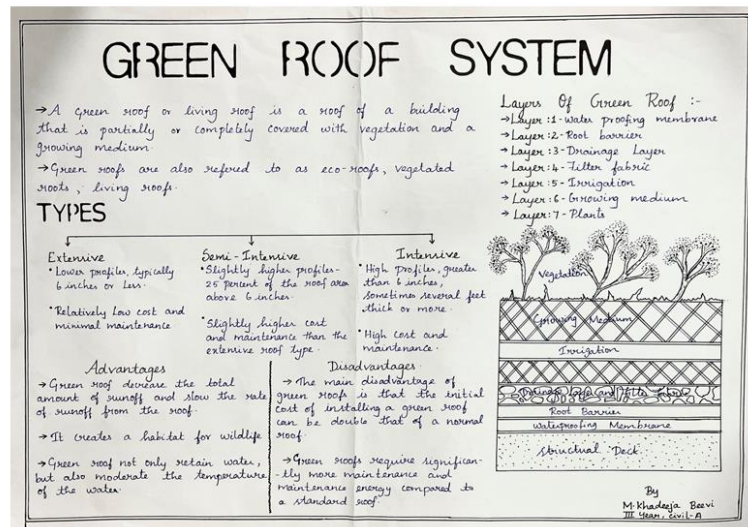 GREEN ROOF SYSTEM
→ A green roof or living roof is a roof of a building
that is partially or completely covered with vegetation and a
growing medium.
→ Green roofs are also refered to as eco-roofs, vegetated
roots, living roofs.
TYPES
Extensive
• Lower profiles, typically
6 inches or Less.
• Relatively low cost and
minimal maintenance
Semi-Intensive
• Slightly higher profiles-
25 percent of the roof area
above 6 inches.
• Slightly higher cost
and maintenance than the
extensive roof type.
Intensive
• High profiles, greater
than 6 inches,
sometimes several feet
thick or more.
• High cost and
maintenance.
Advantages
→ Green roof decrease the total
amount of runoff and slow the rate
of runoff from the roof.
→ It creates a habitat for wildlife
→ Green roof not only retain water,
but also moderate the temperature
of the water.
Disadvantages
→ The main disadvantage of
green roofs is that the initial
cost of installing a green roof
can be double that of a normal
roof.
→ Green roofs require significan-
-tly more maintenance and
maintenance energy compared to
a standard roof.
Layers Of Green Roof :-
→ Layer :1- water proofing membrane
→ Layer :2- Root barrier
→ Layer :3- Drainage Layer
→ Layer :4- Filter fabric
→ Layer :5- Irrigation
→ Layer :6- Growing medium
→ Layer :7- Plants
Vegetation
Growing Medium
Irrigation
Drainage Layer and Filter Fabric
Root Barrier
Waterproofing Membrane
Structural Deck
By
M. Khadeeja Beevi
III Year, civil-A